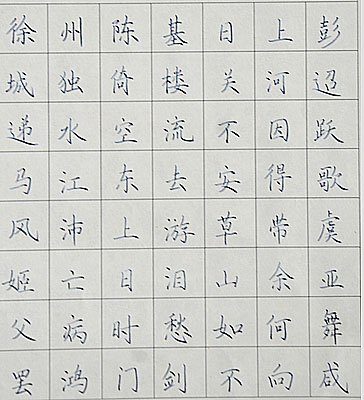 徐州陈基日上彭
城独倚楼关河迢
递水空流不因跃
马江东去安得歌
风沛上游草带虞
姬亡日泪山余亚
父病时愁如何舞
罢鸿门剑不向咸